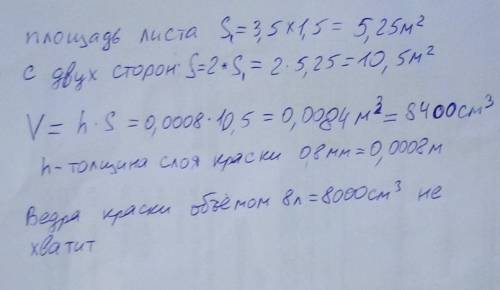 площадь листа S₁=3,5×1,5= 5,25м²
с двух сторон: S=2•S₁=2·5,25=10,5м²
V= h·S=0,0008·10,5=0,0084м³=8400см³
h-толщина слоя краски 0,8мм=0,0008м
Ведра краски объёмом 8л=8000см³ не
хватит